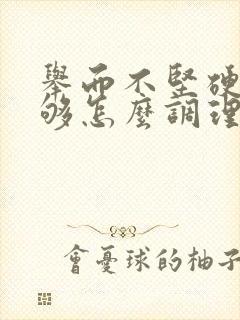 舉而不堅硬
够怎麼調理
會憂球的柚子